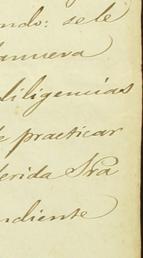 ndo: se le
anueva
diligencias
e practicar
erida Sra
ndiente